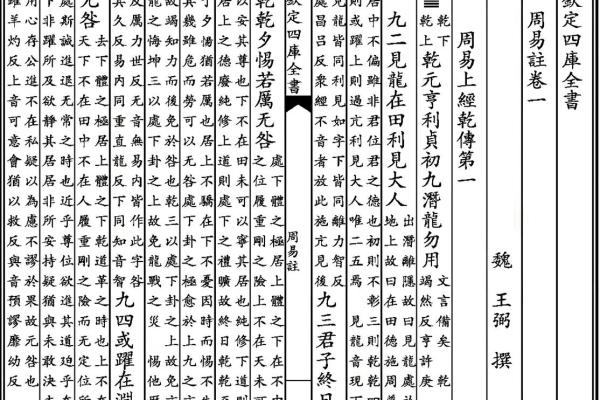 欽定四庫全書
周易註卷一
魏 王弼 撰
周易上經乾傳第一
䷀
乾下
乾上
乾元亨利貞初九潛龍勿用
文言備矣 乾
竭然反亨許庚
九二見龍在田利見大人
出潛離隱故曰見龍處於
地上故曰在田德施周普
居中不偏雖非君位君之德也初則不彰三則乾乾四
則或躍上則過亢利見大人唯二五焉 見龍音現
見龍皆同利見如字下皆同離力智反
處昌呂反衆經不音者放此施亢見後
九三君子終日
欽定四庫全書
周易註
乾乾夕惕若厲无咎
處下體之極居上體之下在不中
之位履重剛之險上不在天未可
以安其尊也下不在田未可以寧其居也純修下道則
居上之德廢純修上道則處下之禮曠故終日乾乾至
于夕惕猶若厲也居上不驕在下不憂因時而惕不失
其幾雖危而勞可以无咎處下卦之極愈於上九之亢
故竭知力而後免於咎也乾三以處下卦之上故免亢
龍之悔坤三以處下卦之上故免龍戰之災 惕他歷
反厲力世反无音無易内皆作此字咎
其久反易内同重直龍反下同知音智
九四或躍在淵
无咎
去下體之極居上體之下乾道革之時也上不在
天下不在田中不在人履重剛之險而无定位所
處斯誠進退无常之時也近乎尊位欲進其道迫乎在
下非躍所及欲靜其居居非所安持疑猶與未敢決志
用心存公進不在私疑以為慮不謬於果故无咎也
躍羊灼反上音可意會猶以救反與音預謬靡幼反